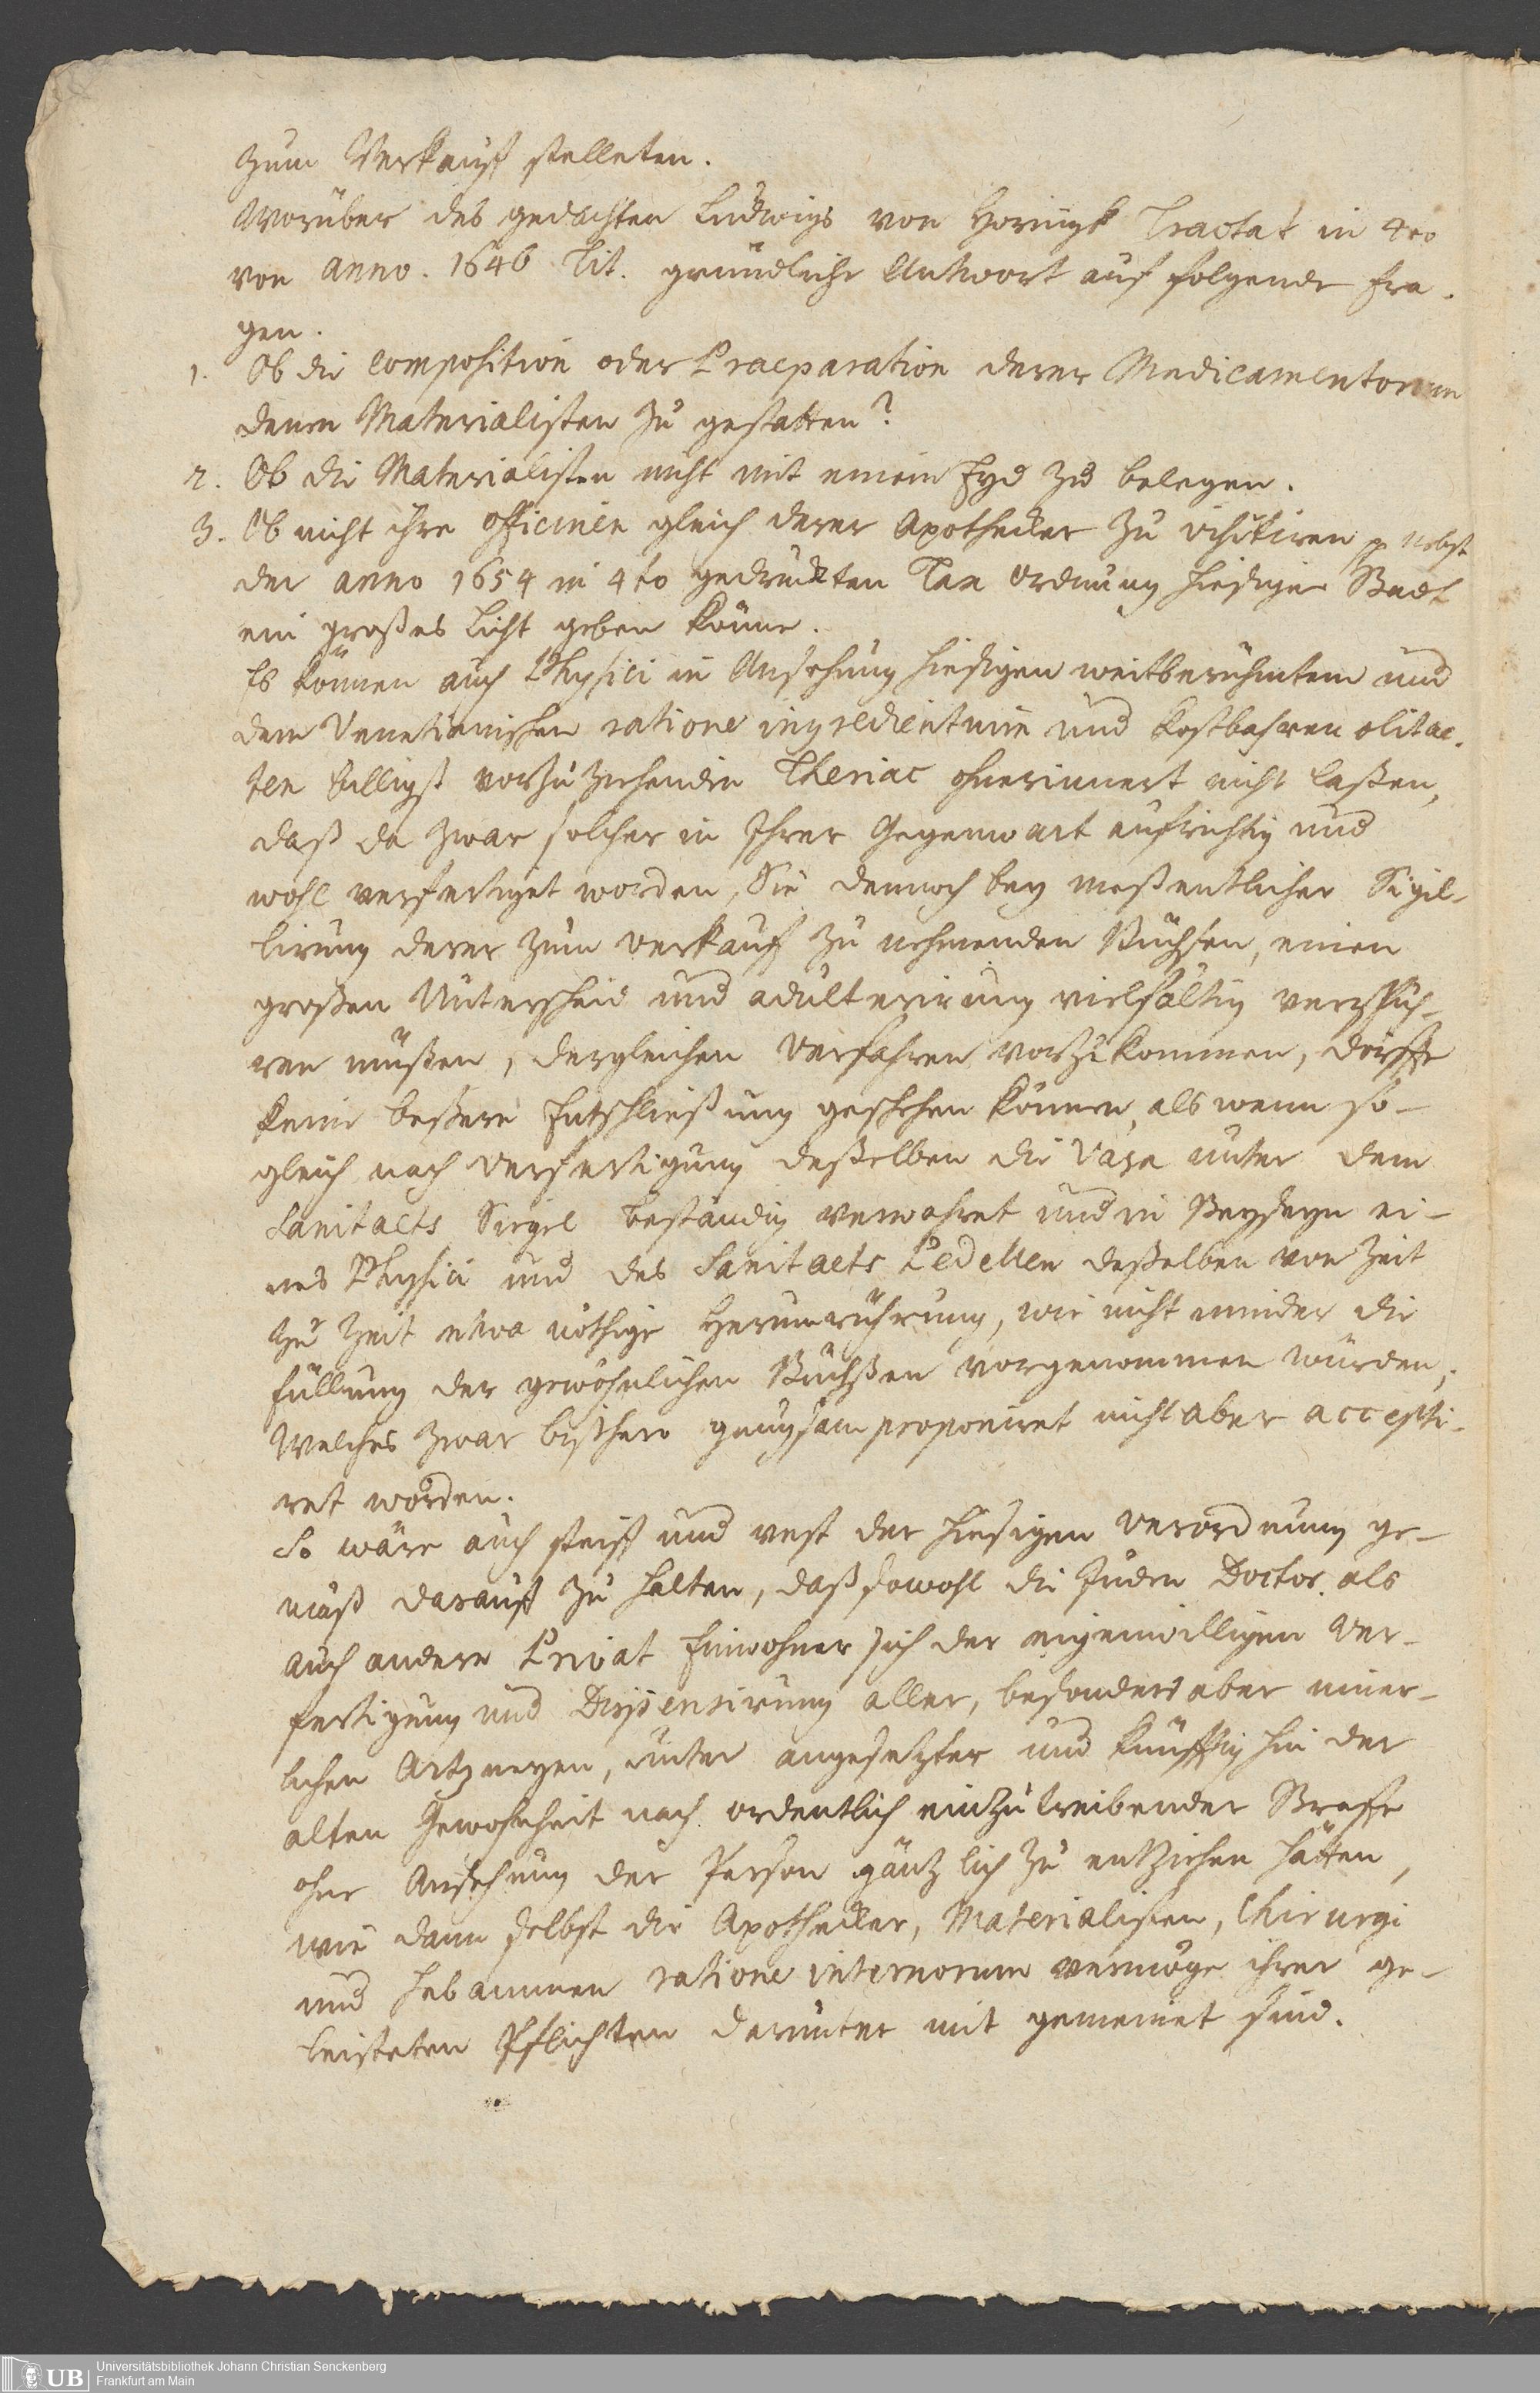 zum Verkauff stelleten.
Worüber des gedachten Ludwigs von Hornigk Tractat in 4to
von anno. 1646 Tit. gründliche Antwort auf folgende Fra-
gen.
1. Ob die composition oder Praeparation derer Medicamentorum
denen Materialisten zu gestatten?
2. Ob die Materialisten nicht mit einem Eyd zu belegen.
3. Ob nicht ihre officinen gleich derer Apothecker zu visitiren p nebst
der anno 1654 in 4to gedruckten Tax Ordnung hiesiger Stadt
ein großes Licht geben könne.
Es können auch Physici in Ansehung hiesigen weitberühmten und
dem Venetianischen ratione ingredientium und kostbahren olitae-
ten billigst vorzuziehenden Theriac ohnerinnert nicht laßen,
daß da zwar solcher in Ihrer Gegenwart aufrichtig und
wohl verfertiget worden, Sie dennoch bey meßentlicher Sigil-
lirung derer zum verkauf zu nehmenden Büchsen, einen
großen Unterscheid und adulterirung vielfältig verspüh-
ren müßen, dergleichen Verfahren vorzukommen, dörffte
keine beßere Entschließung geschehen können, als wenn so-
gleich nach Verfertigung deßelben die Vasa unter dem
Sanitaets Siegel beständig verwahret und in Beyseyn ei-
nes Physici und des Sanitaets Pedellen deßelben von Zeit
zu Zeit etwa nöthige Herumrührung, wie nicht minder die
füllung der gewöhnlichen Büchßen vorgenommen würden;
Welches zwar bißhero gnugsam proponiret nicht aber accepti-
ret worden.
So wäre auch steiff und vest der hiesigen Verordnung ge-
mäß darauff zu halten, daß sowohl die Juden Doctor. als
auch andere Privat Einwohner sich der eigenwilligen Ver-
fertigung und Dispensirung aller, besonders aber inner-
lichen Artzneyen, unter angesetzter und künfftig hin der
alten Gewohnheit nach ordentlich einzutreibender Straffe
ohne Ansehung der Person gäntzlich zu entziehen hätten,
wie dann selbst die Apothecker, Materialisten, Chirurgi
und Hebammen ratione internorum vermöge ihrer ge-
leisteten Pflichten darunter mit gemeinet sind.
UB
Universitätsbibliothek Johann Christian Senckenberg
Frankfurt am Main